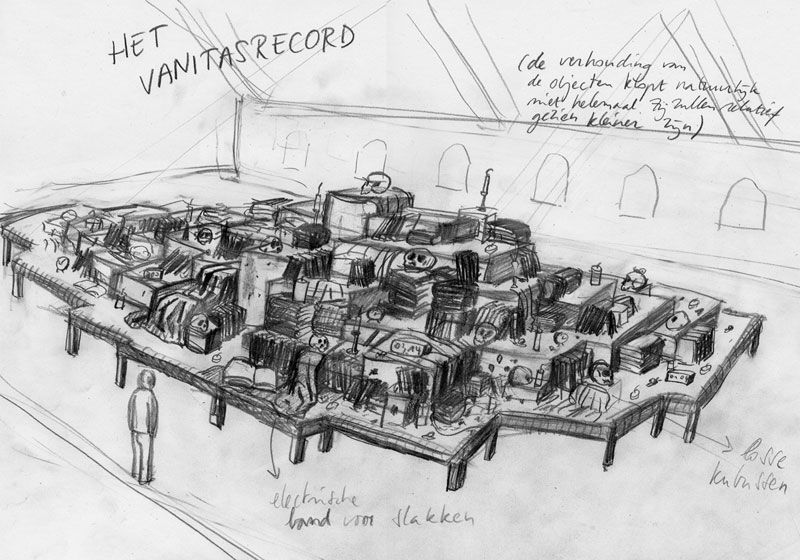 HET
VANITASRECORD
(de verhouding van
de objecten klopt natuurlijk
niet helemaal zij zullen relatief
gezien kleiner zijn)
03,14
losse
kubussen
electrische
band voor slakken